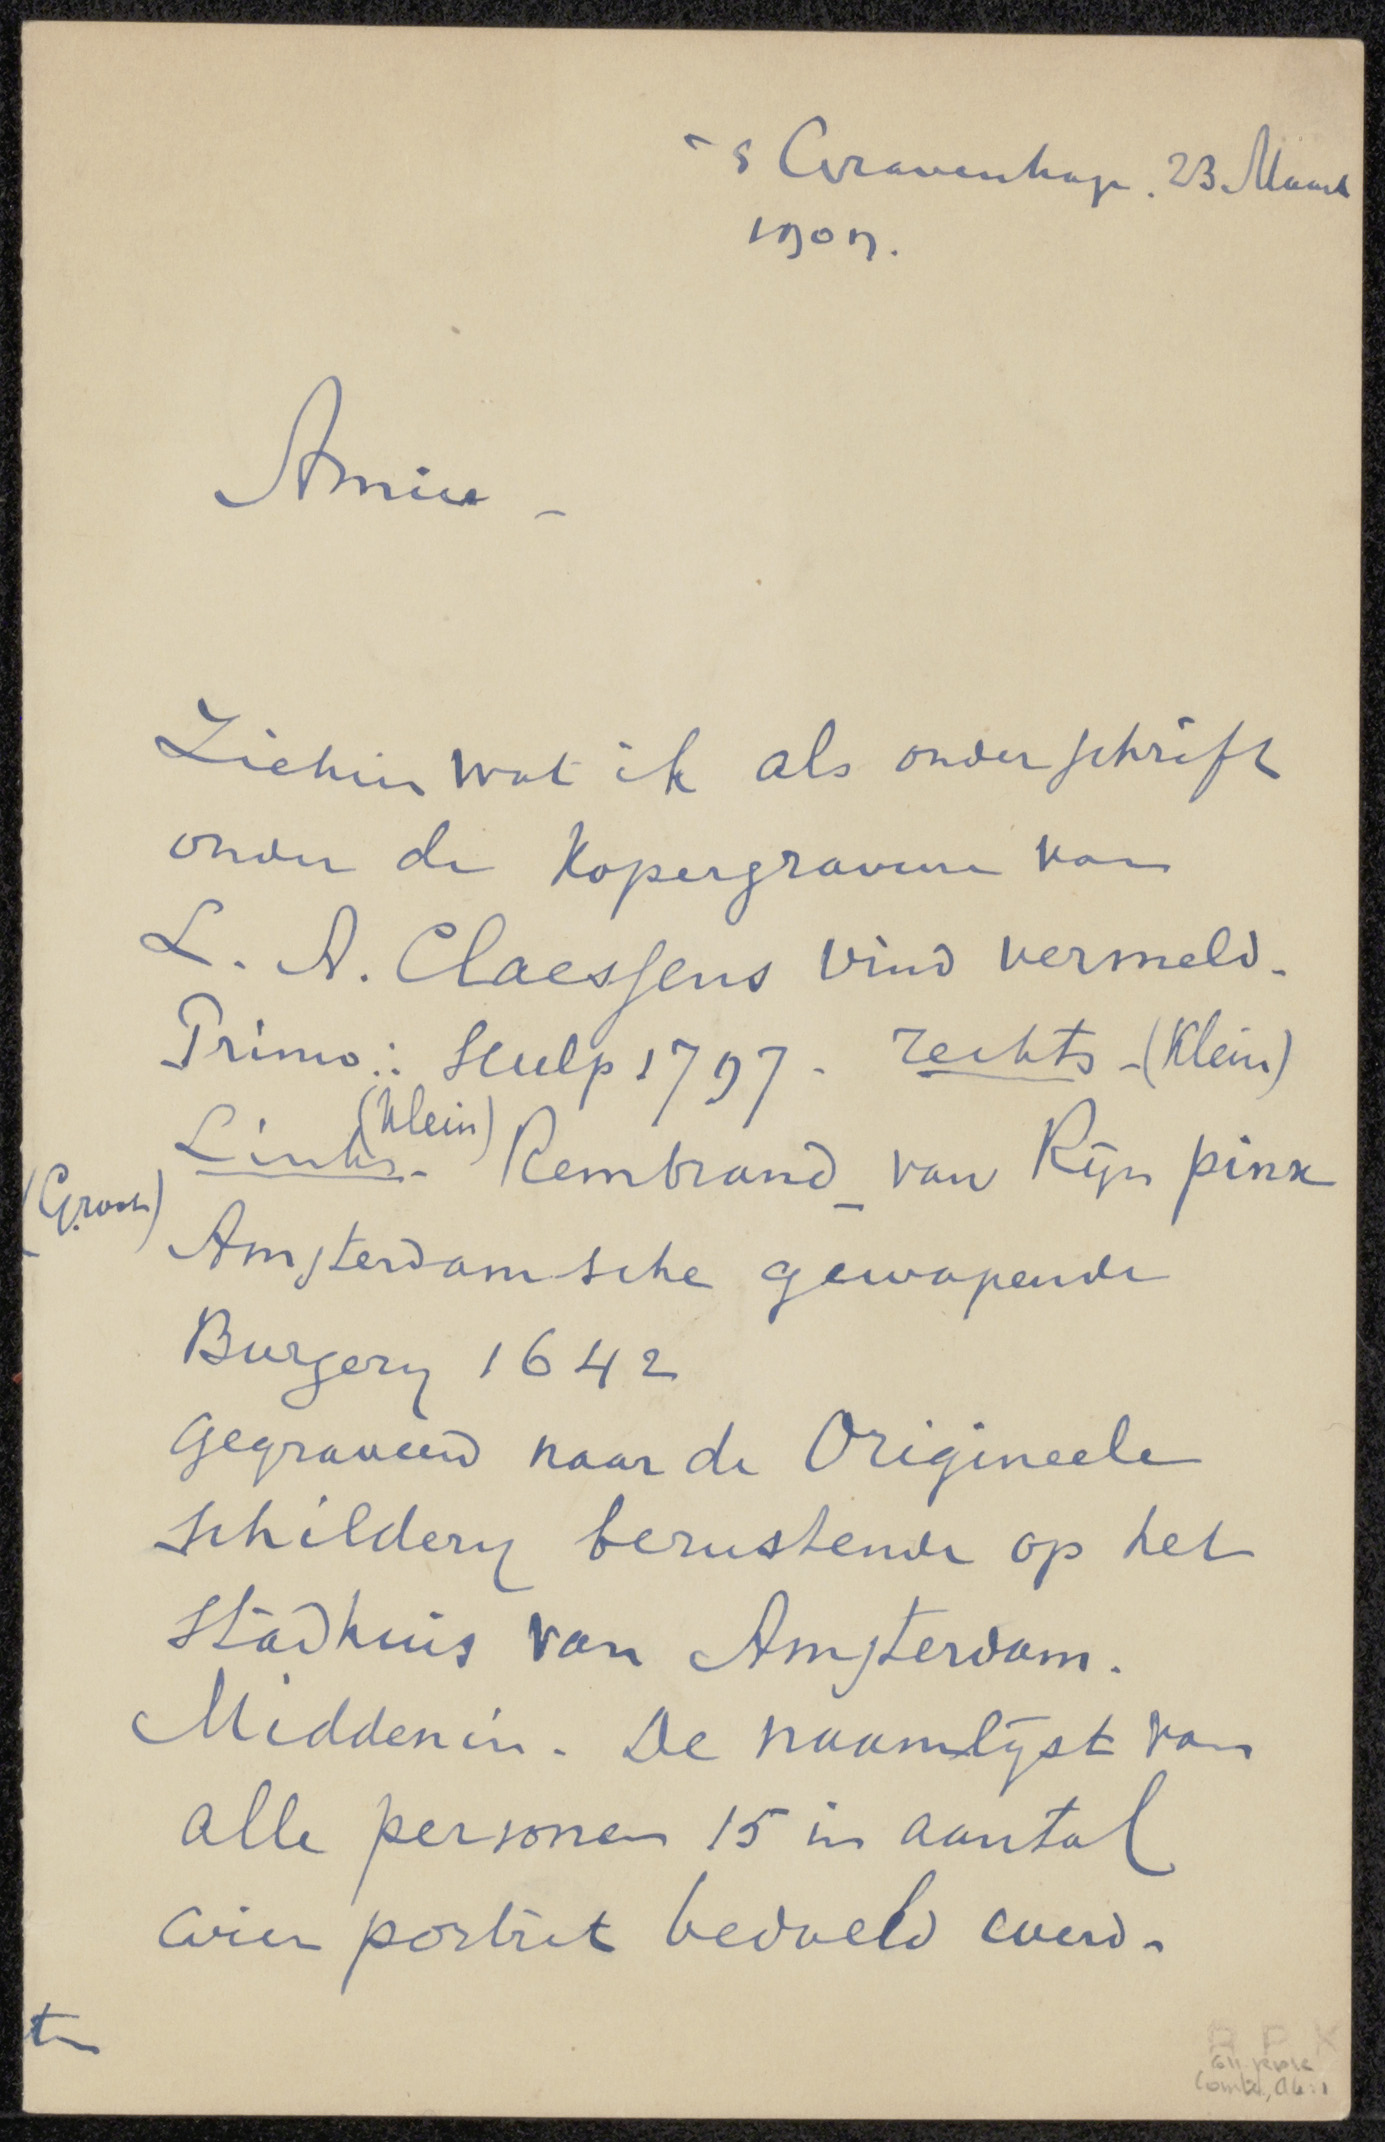 's Gravenhage. 23 Maart
1909.
Amice -
Ziehier wat ik als onderschrift
onder de Kopergravure van
L. A. Claessens vind vermeld.
Primo: Sculp 1797. rechts - (Klein)
Links - (Klein) Rembrand van Rijn pinx
(Groot) Amsterdamsche gewapende
Burgery 1642
gegraveerd naar de Origineele
schildery berustende op het
Stadhuis van Amsterdam.
Midden in. De naamlijst van
alle personen 15 in aantal
wier portret bedoeld werd.